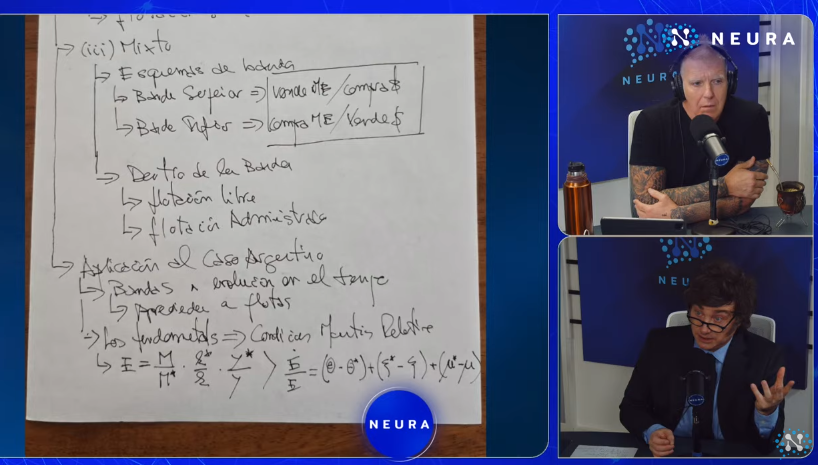 (iii) Mixto
Esquemas de banda
Banda Superior => vende ME / compra $
Banda Inferior => compra ME / vende $
Dentro de la Banda
flotación libre
flotación Administrada
Aplicación al Caso Argentino
Bandas evolución en el tiempo
Aprender a flotar
Los fundamentals => Monetarias Relativas
E = M/M* · · Y*/Y > Ė/E = (θ - θ*) + (ξ* - ξ) + (μ* - μ)
NEURA
NEURA
NEUR
NEU